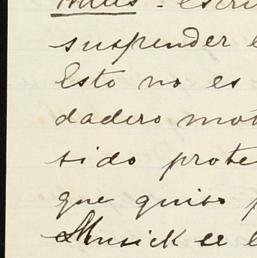 suspender
Esto no es
dadero mot
sido prote
que quiso p
Musick